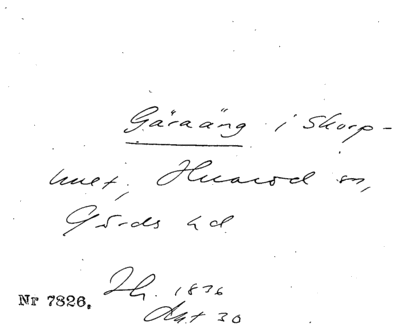 Gäraäng i Skorp-
hult, Huaröd sn,
Gärds hd
Nr 7826. Th. 1836
Akt 30